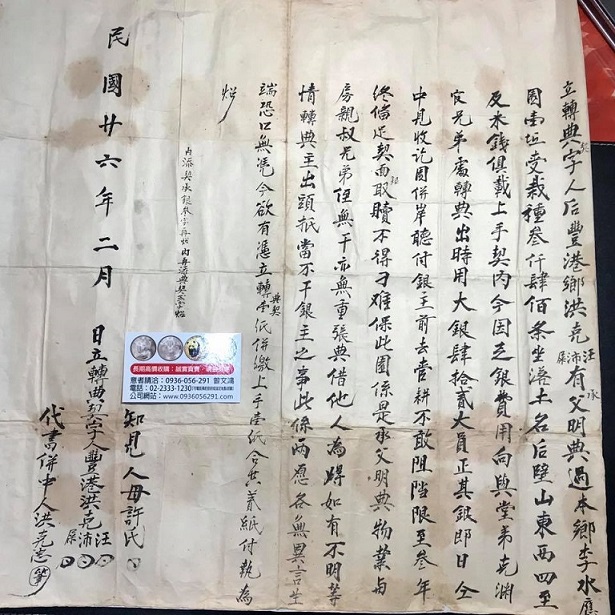 立轉典契字人后豐港鄉洪克汪沛屎有父承明典過本鄉李水應
園壹坵受栽種叁仟肆佰条坐瀯土名后壁山東西四至
及米錢俱載上手契內今因乏銀費用向與堂弟克淵
官兄弟處轉典出時用大銀肆拾貳大員正其銀即日仝
中見收訖園併岸聽付銀主前去管耕不敢阻擋限至叁年
終備足契面取贖不得刁難保此園係是承父明典物業與
房親叔兄弟侄無干亦無重張典借他人為碍如有不明等
情轉典主出頭抵當不干銀主之事此係兩愿各無異言生
端恐口無憑今欲有憑立轉典契壹紙併繳上手陸紙合共紙付執為
炤
內添契承銀叁字再炤
民國廿六年二月 日立轉典契字人豐港洪克汪沛屎
知見人母許氏
代書併中人洪克志
長期高價收購：
意者請洽：0936-056-291 曾文鴻
電話：02-2333-1230
公司網站：www.0936056291.com